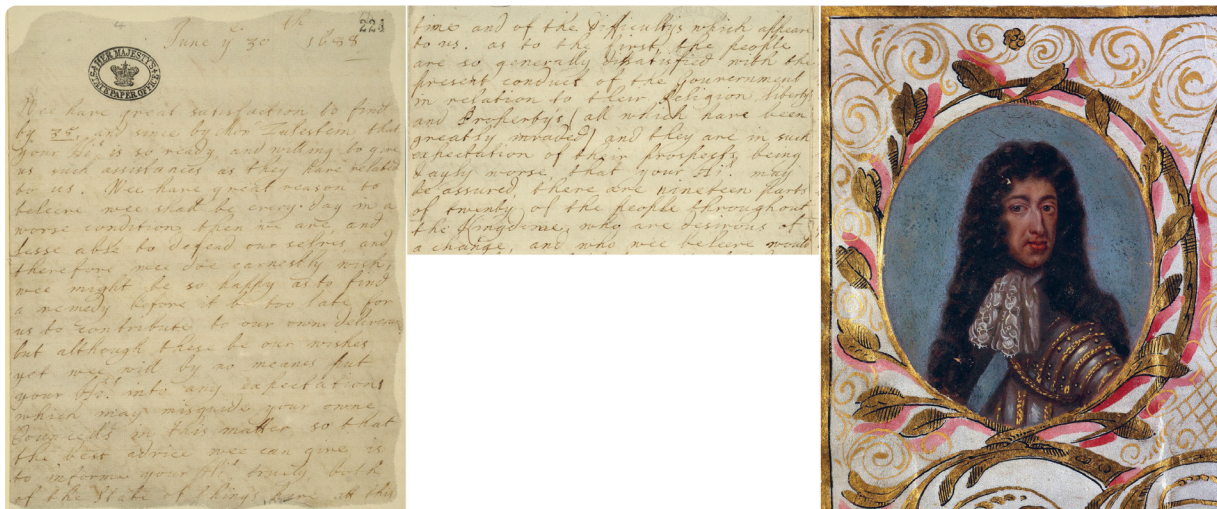 224
June yᵉ 30ᵗʰ 1688
HER MAJESTY'S STATE PAPER OFFICE
Wee have great satisfaction to find
by 35, and since by Monr Zulestein that
your Hs. is so ready, and willing to give
us such assistances as they have related
to us. Wee have great reason to
beleeve wee shall be every day in a
worse condition then we are, and
lesse able to defend our selves, and
therefore wee doe earnestly wish
wee might be so happy as to find
a remedy before it be too late for
us to contribute to our owne deliverance
but although these be our wishes
yet wee will by no meanes put
your Hs. into any expectations
which may misguide your owne
Councells in this matter, so that
the best advice wee can give is
to informe your Hs. truely, both
of the State of things here at this
time and of the difficultys which appeare
to us. as to the first, the people
are so generally dissatisfied with the
present conduct of the Gouvernment
in relation to their Religion, liberty
and Propertys (all which have been
greatly invaded) and they are in such
expectation of their prospects being
dayly worse, that your Hs. may
be assured, there are nineteen parts
of twenty of the people throughout
the Kingdome, who are desirous of
a change, and who wee beleeve would